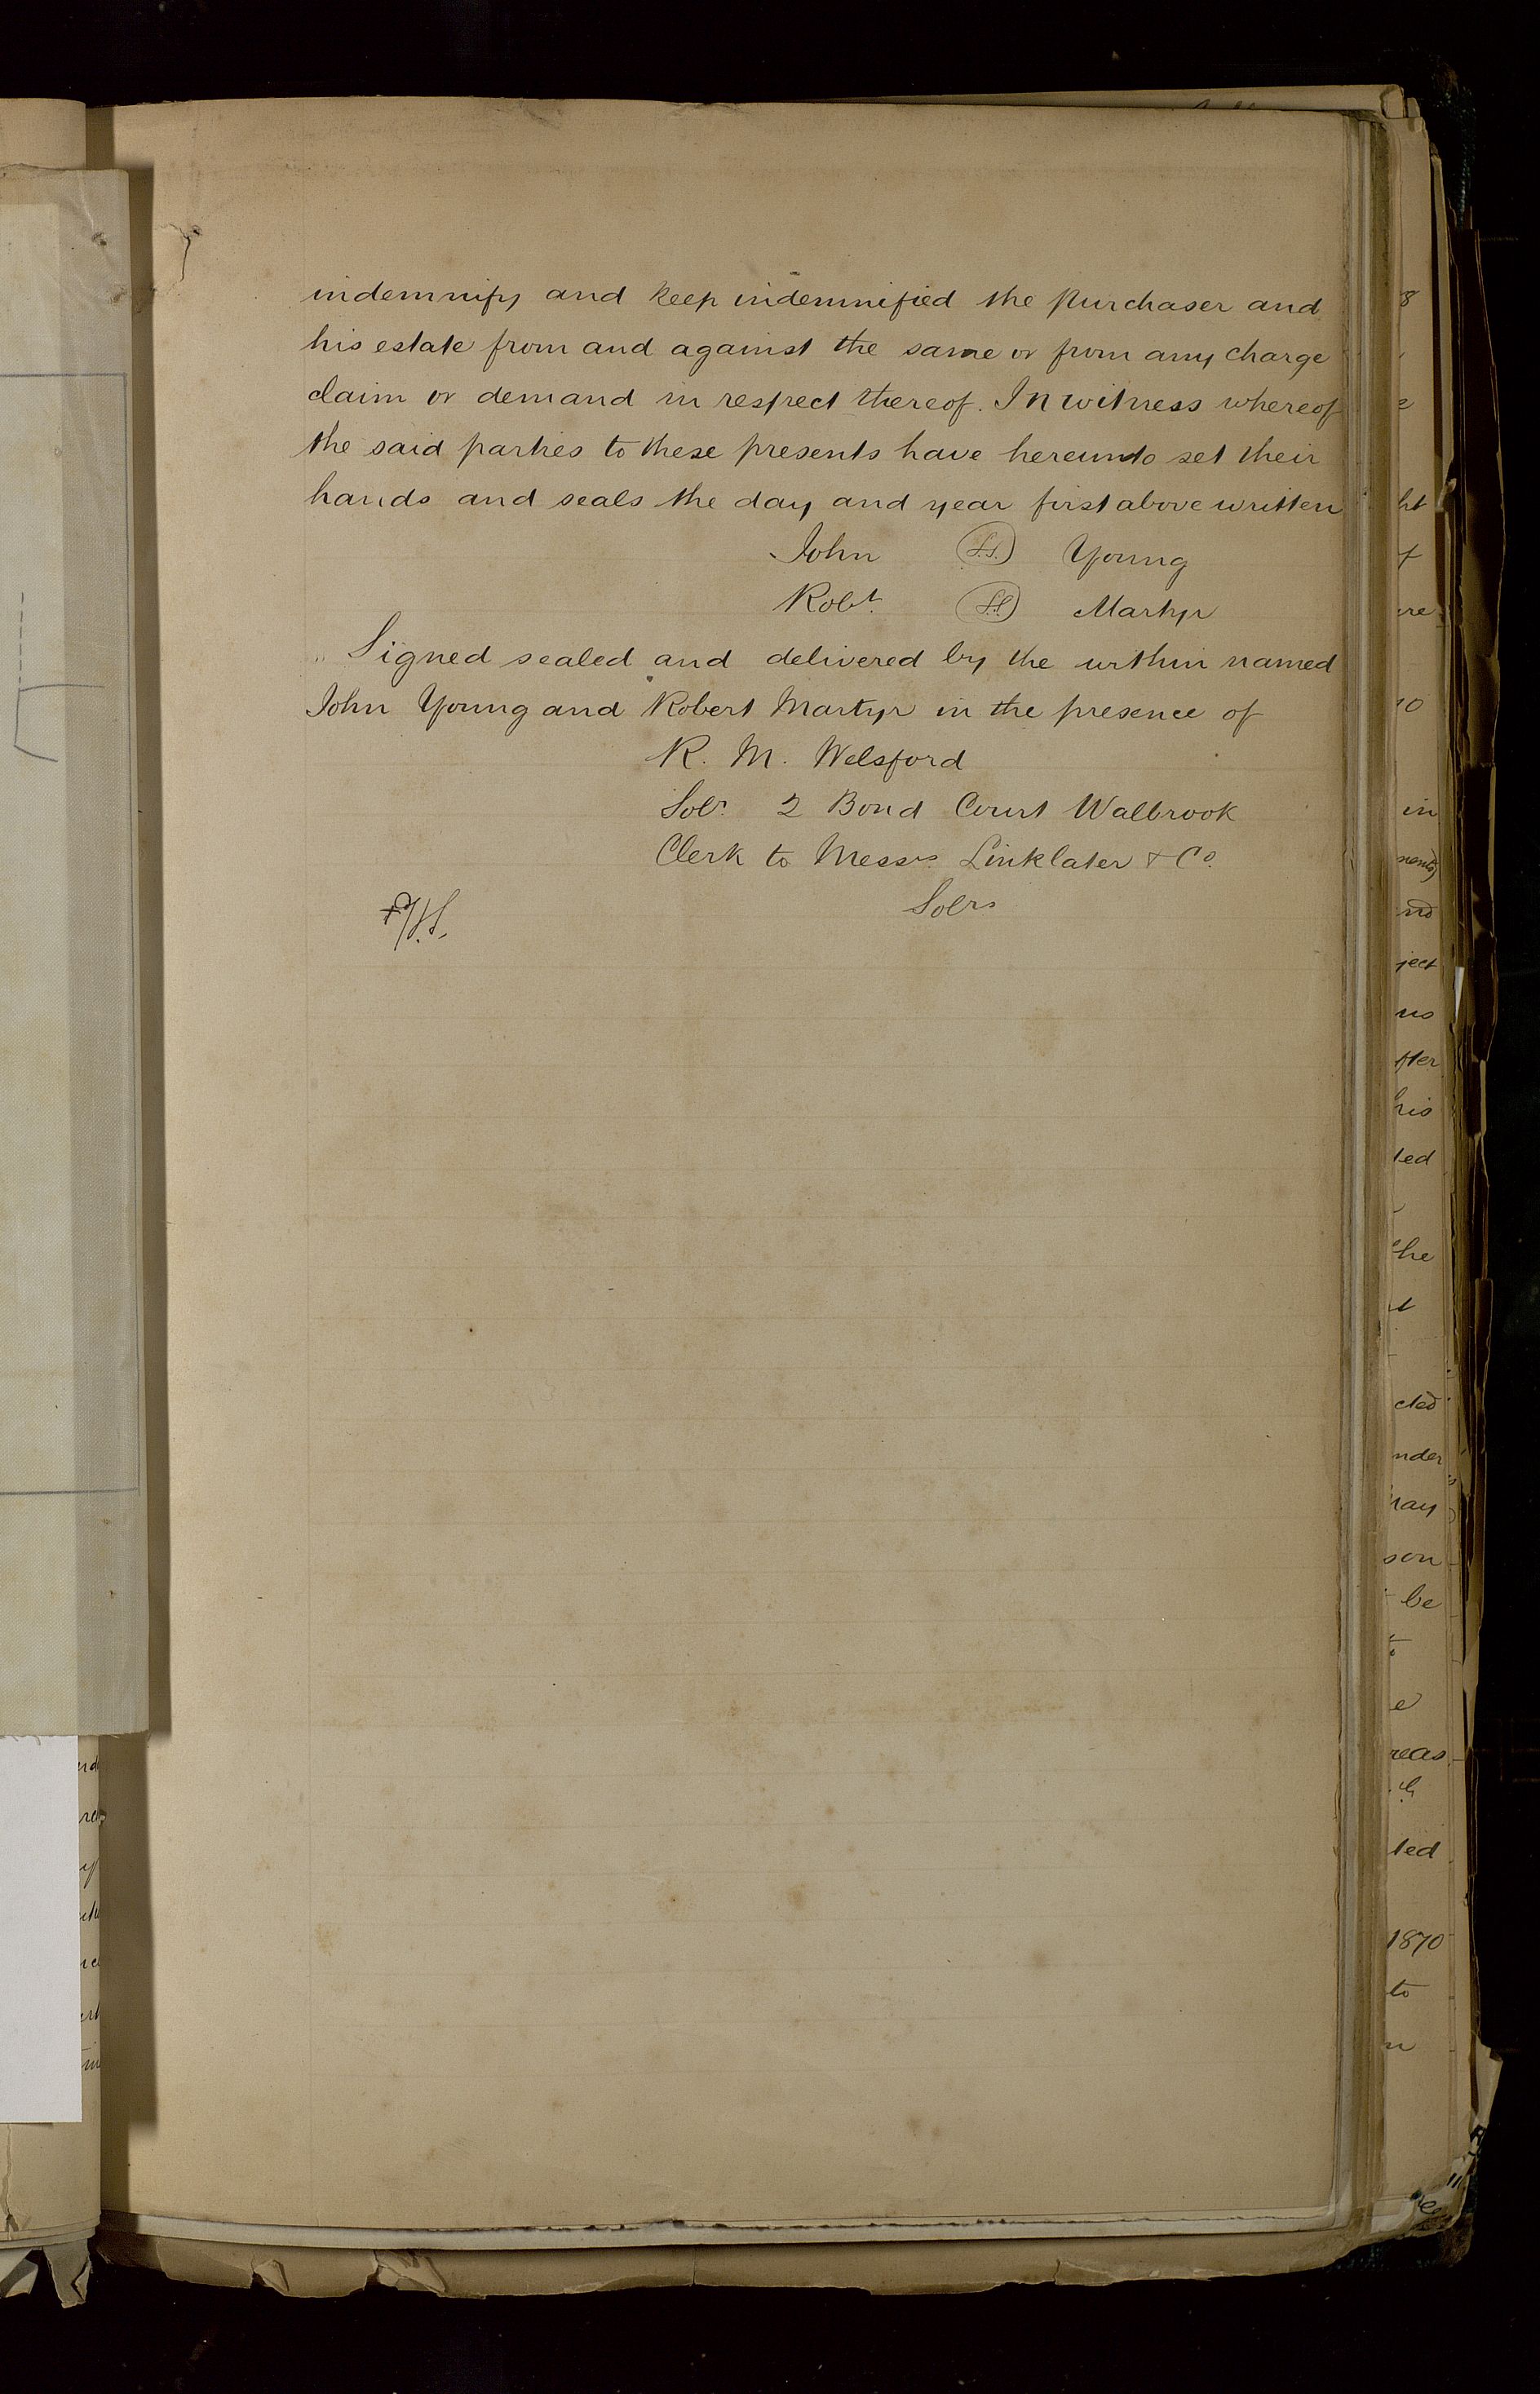 indemnify and keep indemnified the purchaser and
his estate from and against the same or from any charge
claim or demand in respect thereof. In witness whereof
the said parties to these presents have hereunto set their
hands and seals the day and year first above written
John L.S. Young
Robt. L.S. Martyr
„ Signed sealed and delivered by the within named
John Young and Robert Martyr in the presence of
R. M. Welsford
Solr. 2 Bond Court Walbrook
Clerk to Messrs. Linklater & Co.
Solrs
8
ht
f
ere
10
in
nd
ject
us
fter
his
ted
the
t
cted
nder
may
son
be
to
e
reas
ted
1870
to
n